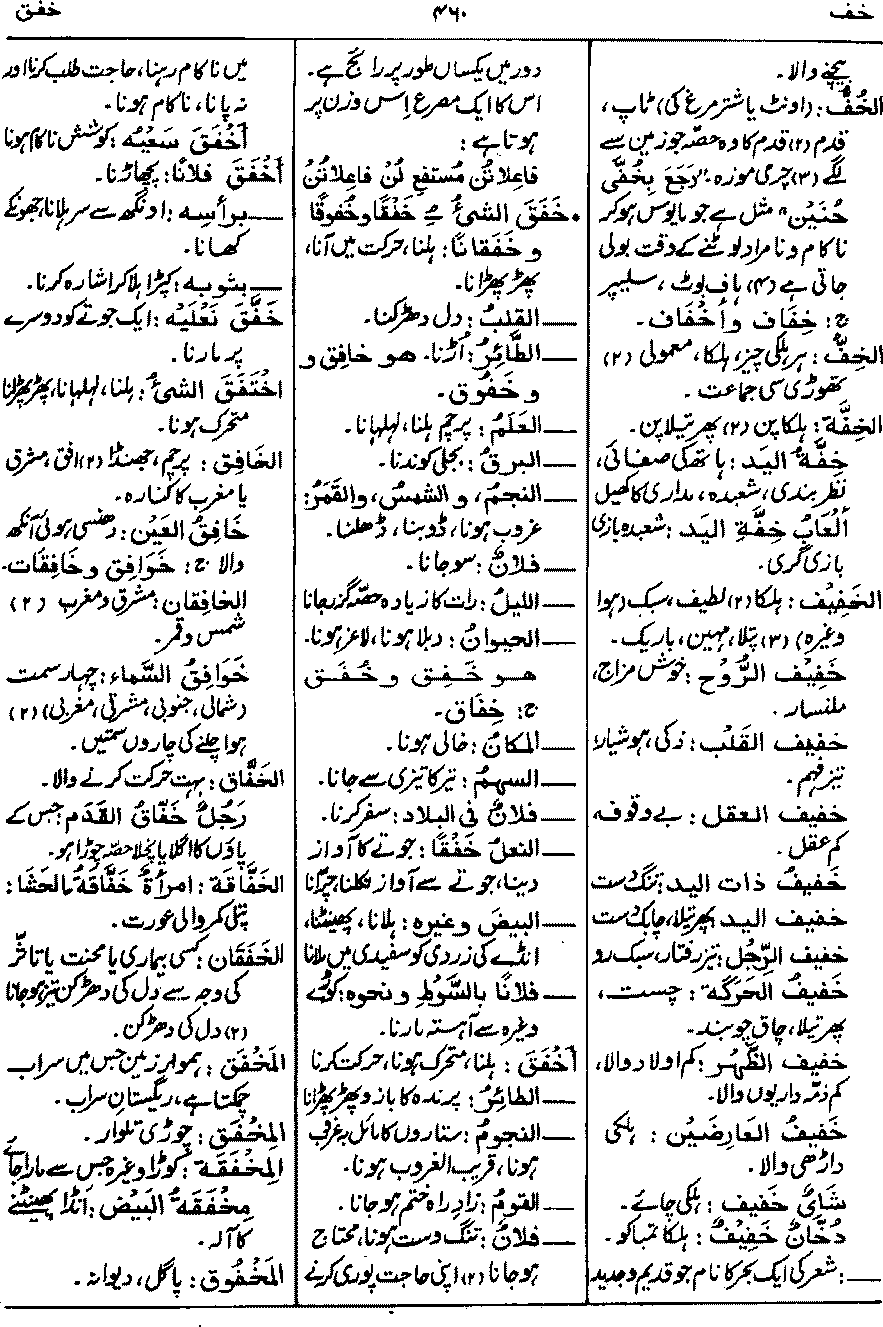 خف
۴۶۰
خفق
بیچنے والا۔
الخُفُّ: (اونٹ یا شتر مرغ کی) ٹاپ،
قدم (۲) قدم کا وہ حصّہ جو زمین سے
لگے (۳) چرمی موزہ۔ "رَجَعَ بِخُفَّى
حُنَيْن" مثل ہے جو مایوس ہو کر
ناکام و نامراد لوٹنے کے وقت بولی
جاتی ہے (۴) ہاف بوٹ، سلیپر
ج: خِفَاف وأَخْفَاف۔
الخِفُّ: ہر ہلکی چیز، ہلکا، معمولی (۲)
تھوڑی سی جماعت۔
الخِفَّة: ہلکا پن (۲) پھرتیلا پن۔
خِفَّةُ اليَد: ہاتھ کی صفائی،
نظر بندی، شعبدہ، مداری کا کھیل
أَلْعَابُ خِفَّةِ اليَد: شعبدہ بازی
بازی گری۔
الخَفِيْف: ہلکا (۲) لطیف، سبک (ہوا
وغیرہ) (۳) پتلا، مہین، باریک۔
خَفِيْف الرُّوْح: خوش مزاج،
ملنسار۔
خفيف القَلْب: ذکی، ہوشیار،
تیز فہم۔
خفيف العقل: بے وقوف
کم عقل۔
خَفِيفُ ذات اليد: تنگ دست
خفيف اليد: پھرتیلا، چابک دست
خفيف الرِّجْل: تیز رفتار، سبک رو
خَفِيفُ الحَرَكَة: چست،
پھرتیلا، چاق چوبند۔
خفيف الظَّهْر: کم اولاد والا،
کم ذمّہ داریوں والا۔
خَفِيْفُ العَارِضَيْن: ہلکی
داڑھی والا۔
شَاىٌ خَفِيف: ہلکی چائے۔
دُخَانٌ خَفِيْفٌ: ہلکا تمباکو۔
ـــ: شعر کی ایک بحر کا نام جو قدیم وجدید
دور میں یکساں طور پر رائج ہے۔
اس کا ایک مصرع اِس وزن پر
ہوتا ہے:
فاعِلاتُن مُستَفعِ لُن فاعِلاتُنْ
• خَفَقَ الشيءُ ـِـ خَفْقًا وخُفُوقًا
و خَفَقَانًا: ہلنا، حرکت میں آنا،
پھڑ پھڑانا۔
ـــ القلبُ: دل دھڑکنا۔
ـــ الطَّائِرُ: اُڑنا۔ هو خافِق و
و خَفُوق۔
ـــ العَلَمُ: پرچم ہلنا، لہلہانا۔
ـــ البرقُ: بجلی کوندنا۔
ـــ النجمُ، و الشمسُ، والقَمَرُ:
غروب ہونا، ڈوبنا، ڈھلنا۔
ـــ فلانٌ: سو جانا۔
ـــ الليلُ: رات کا زیادہ حصّہ گزر جانا
ـــ الحيوانُ: دبلا ہونا، لاغر ہونا۔
هو خَفِق و خُفَق
ج: خِفَاق۔
ـــ المكانُ: خالی ہونا۔
ـــ السهمُ: تیر کا تیزی سے جانا۔
ـــ فلانٌ فى البلاد: سفر کرنا۔
ـــ النعلُ خَفْقًا: جوتے کا آواز
دینا، جوتے سے آواز نکلنا، چرّانا
ـــ البيضَ وغيره: ہلانا، پھینٹنا،
انڈے کی زردی کو سفیدی میں ملانا
ـــ فلانًا بالسَّوْطِ و نحوه: کوڑے
وغیرہ سے آہستہ مارنا۔
أَخْفَقَ: ہلنا، متحرک ہونا، حرکت کرنا
ـــ الطائِرُ: پرندہ کا بازو پھڑ پھڑانا
ـــ النجومُ: ستاروں کا مائل بہ غروب
ہونا، قریب الغروب ہونا۔
ـــ القومُ: زادِ راہ ختم ہو جانا۔
ـــ فلانٌ: تنگ دست ہونا، محتاج
ہو جانا (۲) اپنی حاجت پوری کرنے
میں ناکام رہنا، حاجت طلب کرنا اور
نہ پانا، ناکام ہونا۔
أَخْفَقَ سَعْيُه: کوشش ناکام ہونا
أَخْفَقَ فلانًا: پچھاڑنا۔
ـــ برأسِه: اونگھ سے سر ہلانا، جھونکے
کھانا۔
ـــ بثوبه: کپڑا ہلا کر اشارہ کرنا۔
خَفَّقَ نَعْلَيْه: ایک جوتے کو دوسرے
پر مارنا۔
اخْتَفَقَ الشيءُ: ہلنا، لہلہانا، پھڑپھڑانا
متحرک ہونا۔
الخَافِق: پرچم، جھنڈا (۲) افق، مشرق
یا مغرب کا کنارہ۔
خَافِقُ العَيْن: دھنسی ہوئی آنکھ
والا ج: خَوَافِق وخَافِقَات۔
الخافِقان: مشرق و مغرب (۲)
شمس و قمر۔
خَوَافِقُ السَّماء: چہار سمت
(شمالی، جنوبی، مشرقی، مغربی) (۲)
ہوا چلنے کی چاروں سمتیں۔
الخَفَّاق: بہت حرکت کرنے والا۔
رَجُلٌ خَفَّاقُ القَدَم: جس کے
پاؤں کا اگلا یا پچھلا حصّہ چوڑا ہو۔
الخَفَّاقَة: امرأةٌ خَفَّاقَةُ الحَشَا:
پتلی کمر والی عورت۔
الخَفَقَان: کسی بیماری یا محنت یا تاثّر
کی وجہ سے دل کی دھڑکن تیز ہو جانا
(۲) دل کی دھڑکن۔
المَخْفَق: ہموار زمین جس میں سراب
چمکتا ہے، ریگستانِ سراب۔
المِخْفَق: چوڑی تلوار۔
المِخْفَقَة: کوڑا وغیرہ جس سے مارا جائے
مِخْفَقَةُ البَيْض: انڈا پھینٹنے
کا آلہ۔
المَخْفُوق: پاگل، دیوانہ۔